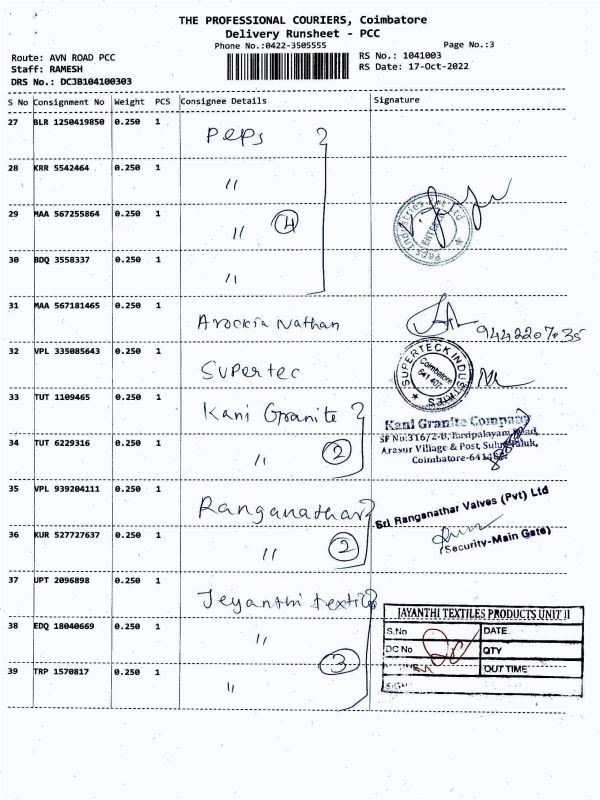 THE PROFESSIONAL COURIERS, Coimbatore
Delivery Runsheet - PCC
Phone No.:0422-3505555
Page No.:3
Route: AVN ROAD PCC
RS No.: 1041003
Staff: RAMESH
RS Date: 17-Oct-2022
DRS No.: DCJB104100303
S No Consignment No Weight PCS Consignee Details Signature
27 BLR 1250419850 0.250 1 Peps
28 KRR 5542464 0.250 1 〃
29 MAA 567255864 0.250 1 〃 4
30 BDQ 3558337 0.250 1 〃
31 MAA 567181465 0.250 1 Arockia Nathan
32 VPL 335085643 0.250 1 Supertec
SUPERTECK INDUSTRIES
Coimbatore
641 407
33 TUT 1109465 0.250 1 Kani Granite
Kani Granite Company
SF No:316/2-B, Rasipalayam Road,
34 TUT 6229316 0.250 1 〃 2
Arasur Village & Post, Sulur Taluk,
Coimbatore-641407.
35 VPL 939204111 0.250 1 Ranganathar
Sri Ranganathar Valves (Pvt) Ltd
36 KUR 527727637 0.250 1 〃 2
(Security-Main Gate)
37 UPT 2096898 0.250 1 Jeyanthi textile
JAYANTHI TEXTILES PRODUCTS UNIT II
38 EDQ 18040669 0.250 1 〃
S.No DATE
DC No QTY
39 TRP 1570817 0.250 1 〃 3
OUT TIME